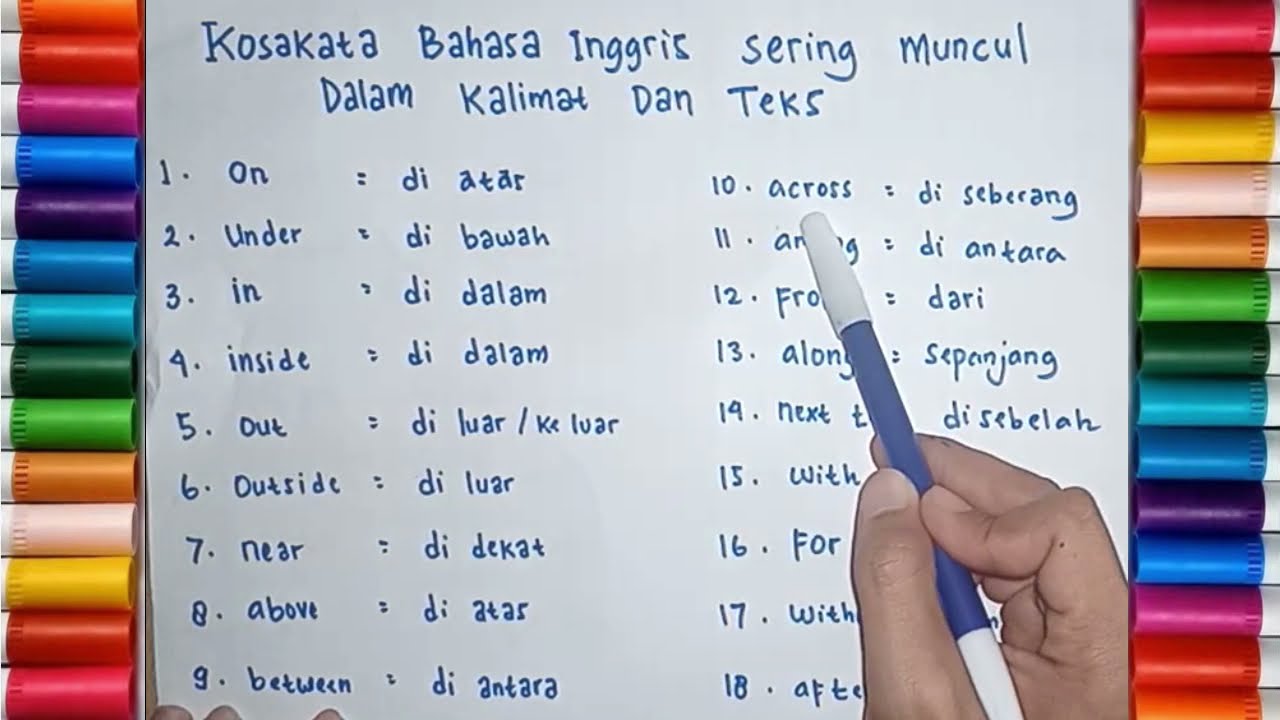 Kosakata Bahasa Inggris Sering Muncul
Dalam Kalimat Dan Teks
1. On = di atar
2. Under = di bawah
3. in = di dalam
4. inside = di dalam
5. Out = di luar / ke luar
6. Outside = di luar
7. near = di dekat
8. above = di atas
9. between = di antara
10. across = di seberang
11. = di antara
12. = dari
13. along = sepanjang
14. next disebelah
15. With
16. For
17.
18.